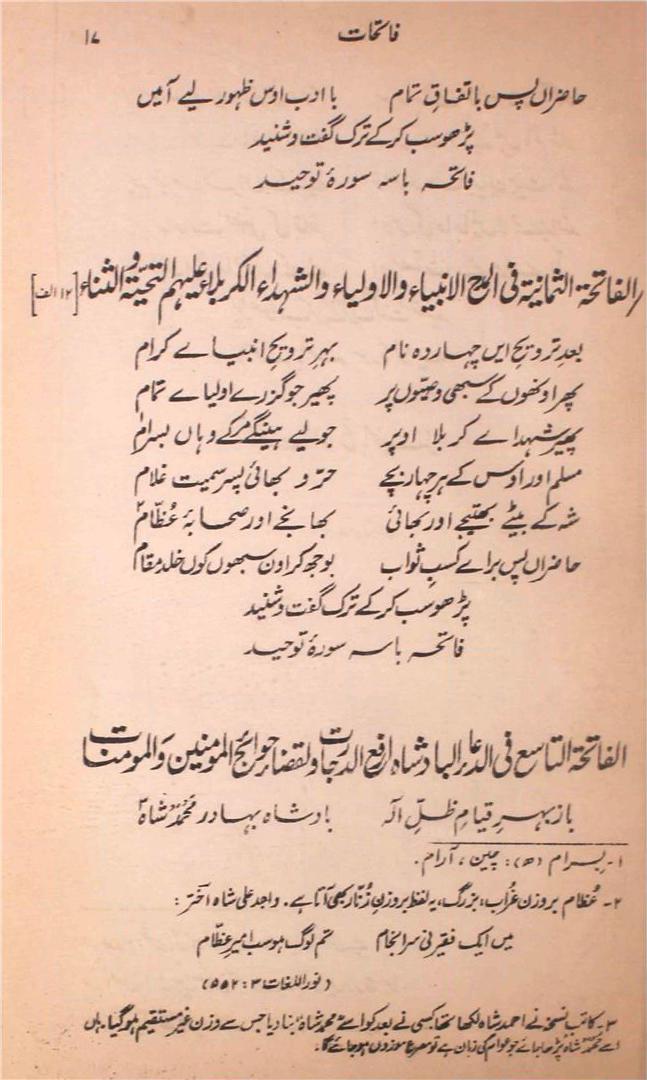 فاتحات ۱۷
حاضراں پس باتفاقِ تمام با ادب اوس ظہور لیے آمیں
پڑھو سب کرکے ترک گفت و شنید
فاتحہ باسہ سورۂ توحید
الفاتحۃ الثمانیۃ فی المدح الانبیاء والاولیاء والشہداء الکربلاء علیہم التحیّۃ والثناء [۱۲ الف]
بعد ترویحِ ایں چہاردہ نام بہر ترویحِ انبیاے کرام
پھر اونھوں کے سبھی وصیّوں پر پھیر جو گزرے اولیاے تمام
پھیر شہداے کربلا اوپر جو لیے ہینگے مرکے وہاں بسرام۱
مسلم اور اوس کے ہر چہار بچے حرّ و بھائی پسر سمیت غلام
شہ کے بیٹے بھتیجے اور بھائی بھانجے اور صحابۂ عُظّام۲
حاضراں پس براے کسبِ ثواب بوجھ کر اون سبھوں کوں خلد مقام
پڑھو سب کرکے ترک گفت و شنید
فاتحہ باسہ سورۂ توحید
الفاتحۃ التاسع فی الدعا البادشاہ ارفع الدرجات ولقضاء حوائج المومنین والمومنات
باز بہرِ قیامِ ظلِّ الٰہ بادشاہ بہادر محمّد شاہ۳
۱۔ بسرام (ھ): چین، آرام۔
۲۔ عُظام بروزن غُراب، بزرگ، یہ لفظ بروزن زُنّار بھی آتا ہے۔ واجد علی شاہ اختر:
میں ایک فقیرنی سرانجام تم لوگ ہو سب امیر عظّام
(نور اللغات ۳: ۵۵۲)
۳۔ کاتب نسخہ نے احمد شاہ لکھا تھا کسی نے بعد کو اسے محمد شاہ بنا دیا جس سے وزن غیر مستقیم ہو گیا۔ ہاں
اسے محمّد شاہ پڑھا جائے جو عوام کی زبان ہے تو مصرعہ موزوں ہو جائے گا۔